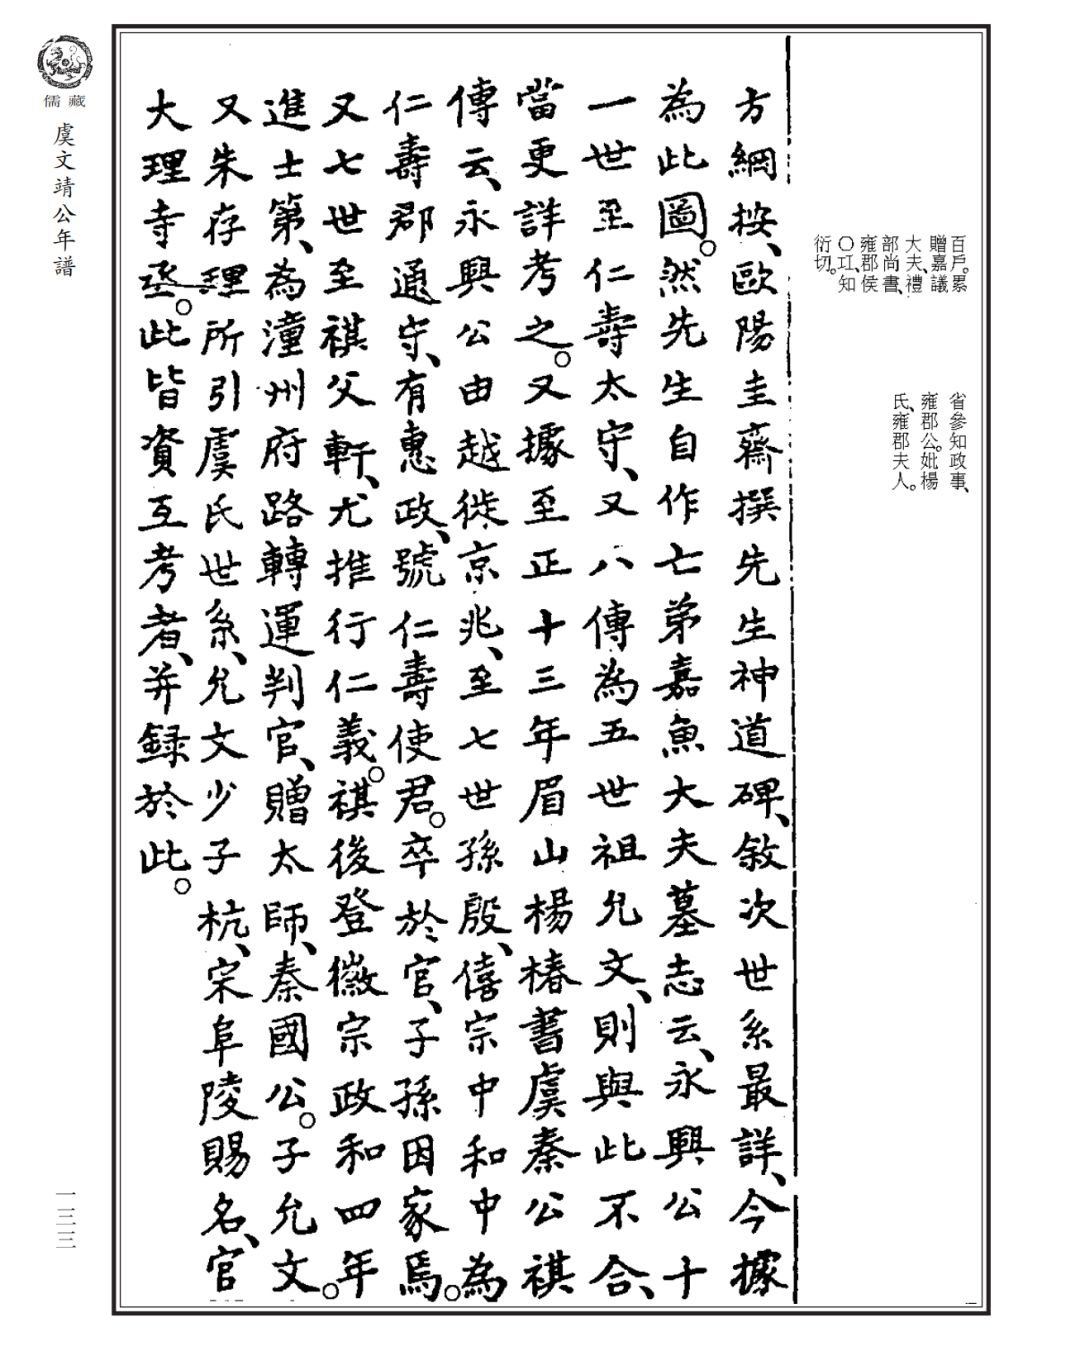 百戶。累
贈嘉議
大夫、禮
部尚書、
雍郡侯
〇㓛、知
衍切。
省參知政事、
雍郡公。妣楊
氏、雍郡夫人。
方綱按、歐陽圭齋撰先生神道碑、敘次世系最詳、今據
為此圖。然先生自作亡弟嘉魚大夫墓志云、永興公十
一世至仁壽太守、又八傳為五世祖允文、則與此不合、
當更詳考之。又據至正十三年眉山楊椿書虞秦公祺
傳云、永興公由越徙京兆、至七世孫殷、僖宗中和中為
仁壽郡通守、有惠政、號仁壽使君。卒於官、子孫因家焉。
又七世至祺父軒、尤推行仁義。祺後登徽宗政和四年
進士第、為潼州府路轉運判官、贈太師、秦國公。子允文。
又朱存理所引虞氏世系、允文少子杭、宋阜陵賜名、官
大理寺丞。此皆資互考者、并録於此。
儒藏
虞文靖公年譜
一三三